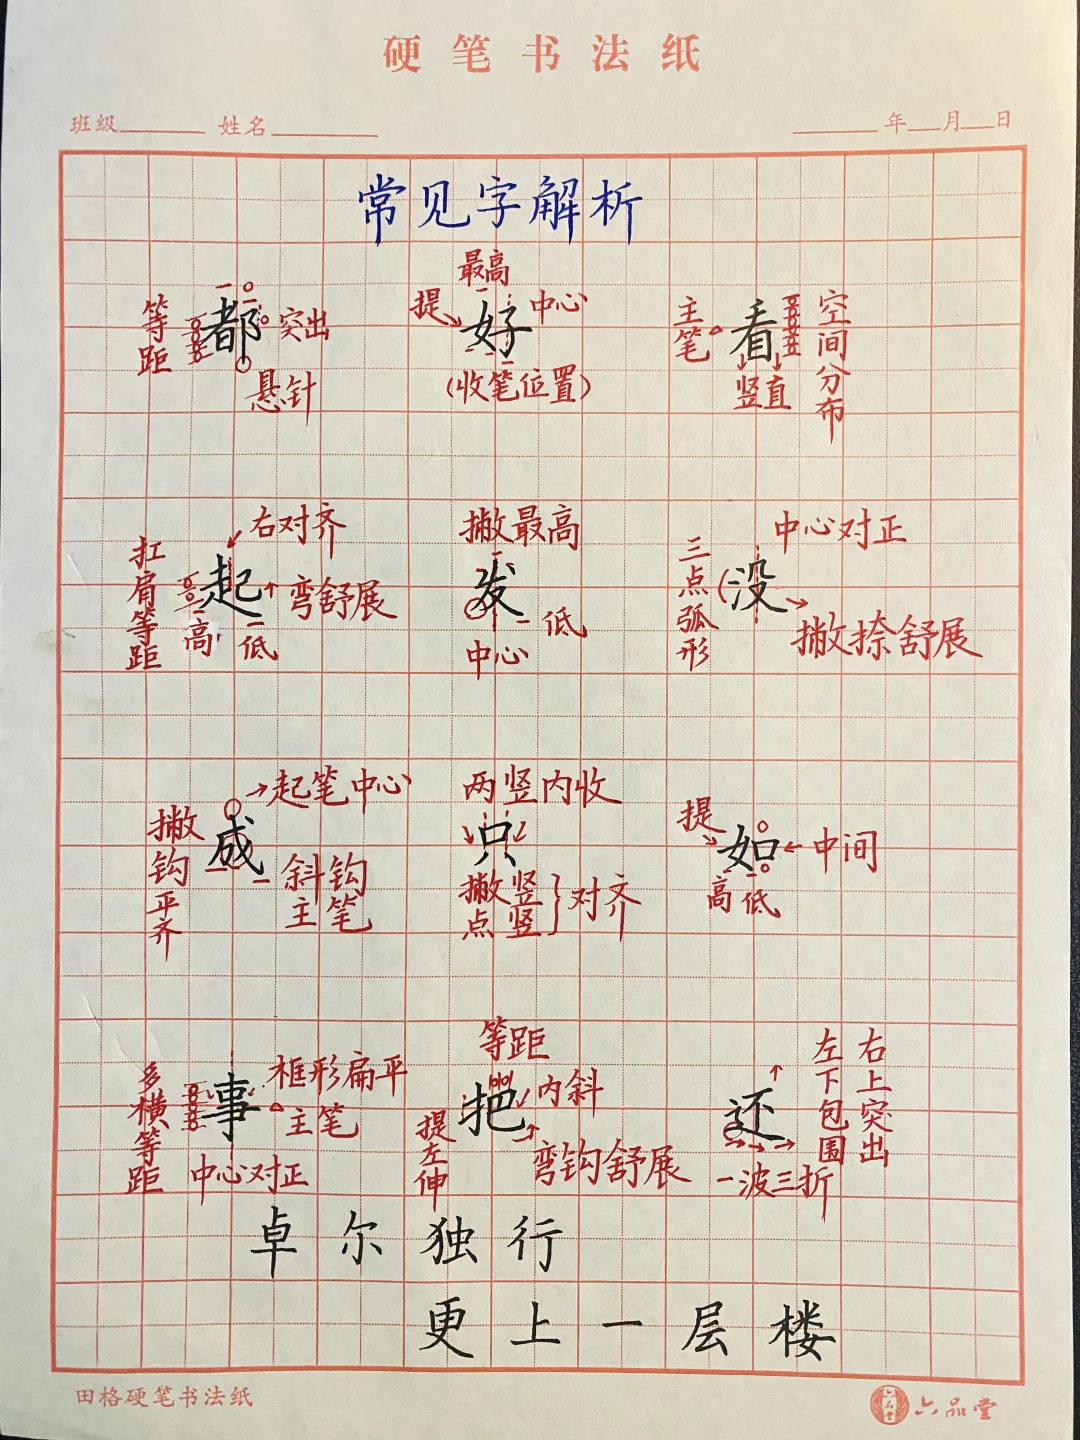 硬笔书法纸
班级 姓名 年 月 日
常见字解析
等距 都 突出
悬针
最高
提 好 中心
(收笔位置)
主笔 看 空间分布
竖直
右对齐
扛肩等距 起 弯舒展
高 低
撇最高
发 低
中心
中心对正
三点弧形 没
撇捺舒展
起笔中心
撇钩平齐 成 斜钩主笔
两竖内收
只
撇竖
点竖
对齐
提 如 中间
高 低
多横等距 事 框形扁平
主笔
中心对正
等距
把 内斜
提左伸 弯钩舒展
还 左下包围 右上突出
一波三折
卓尔独行
更上一层楼
田格硬笔书法纸
六品堂 六品堂